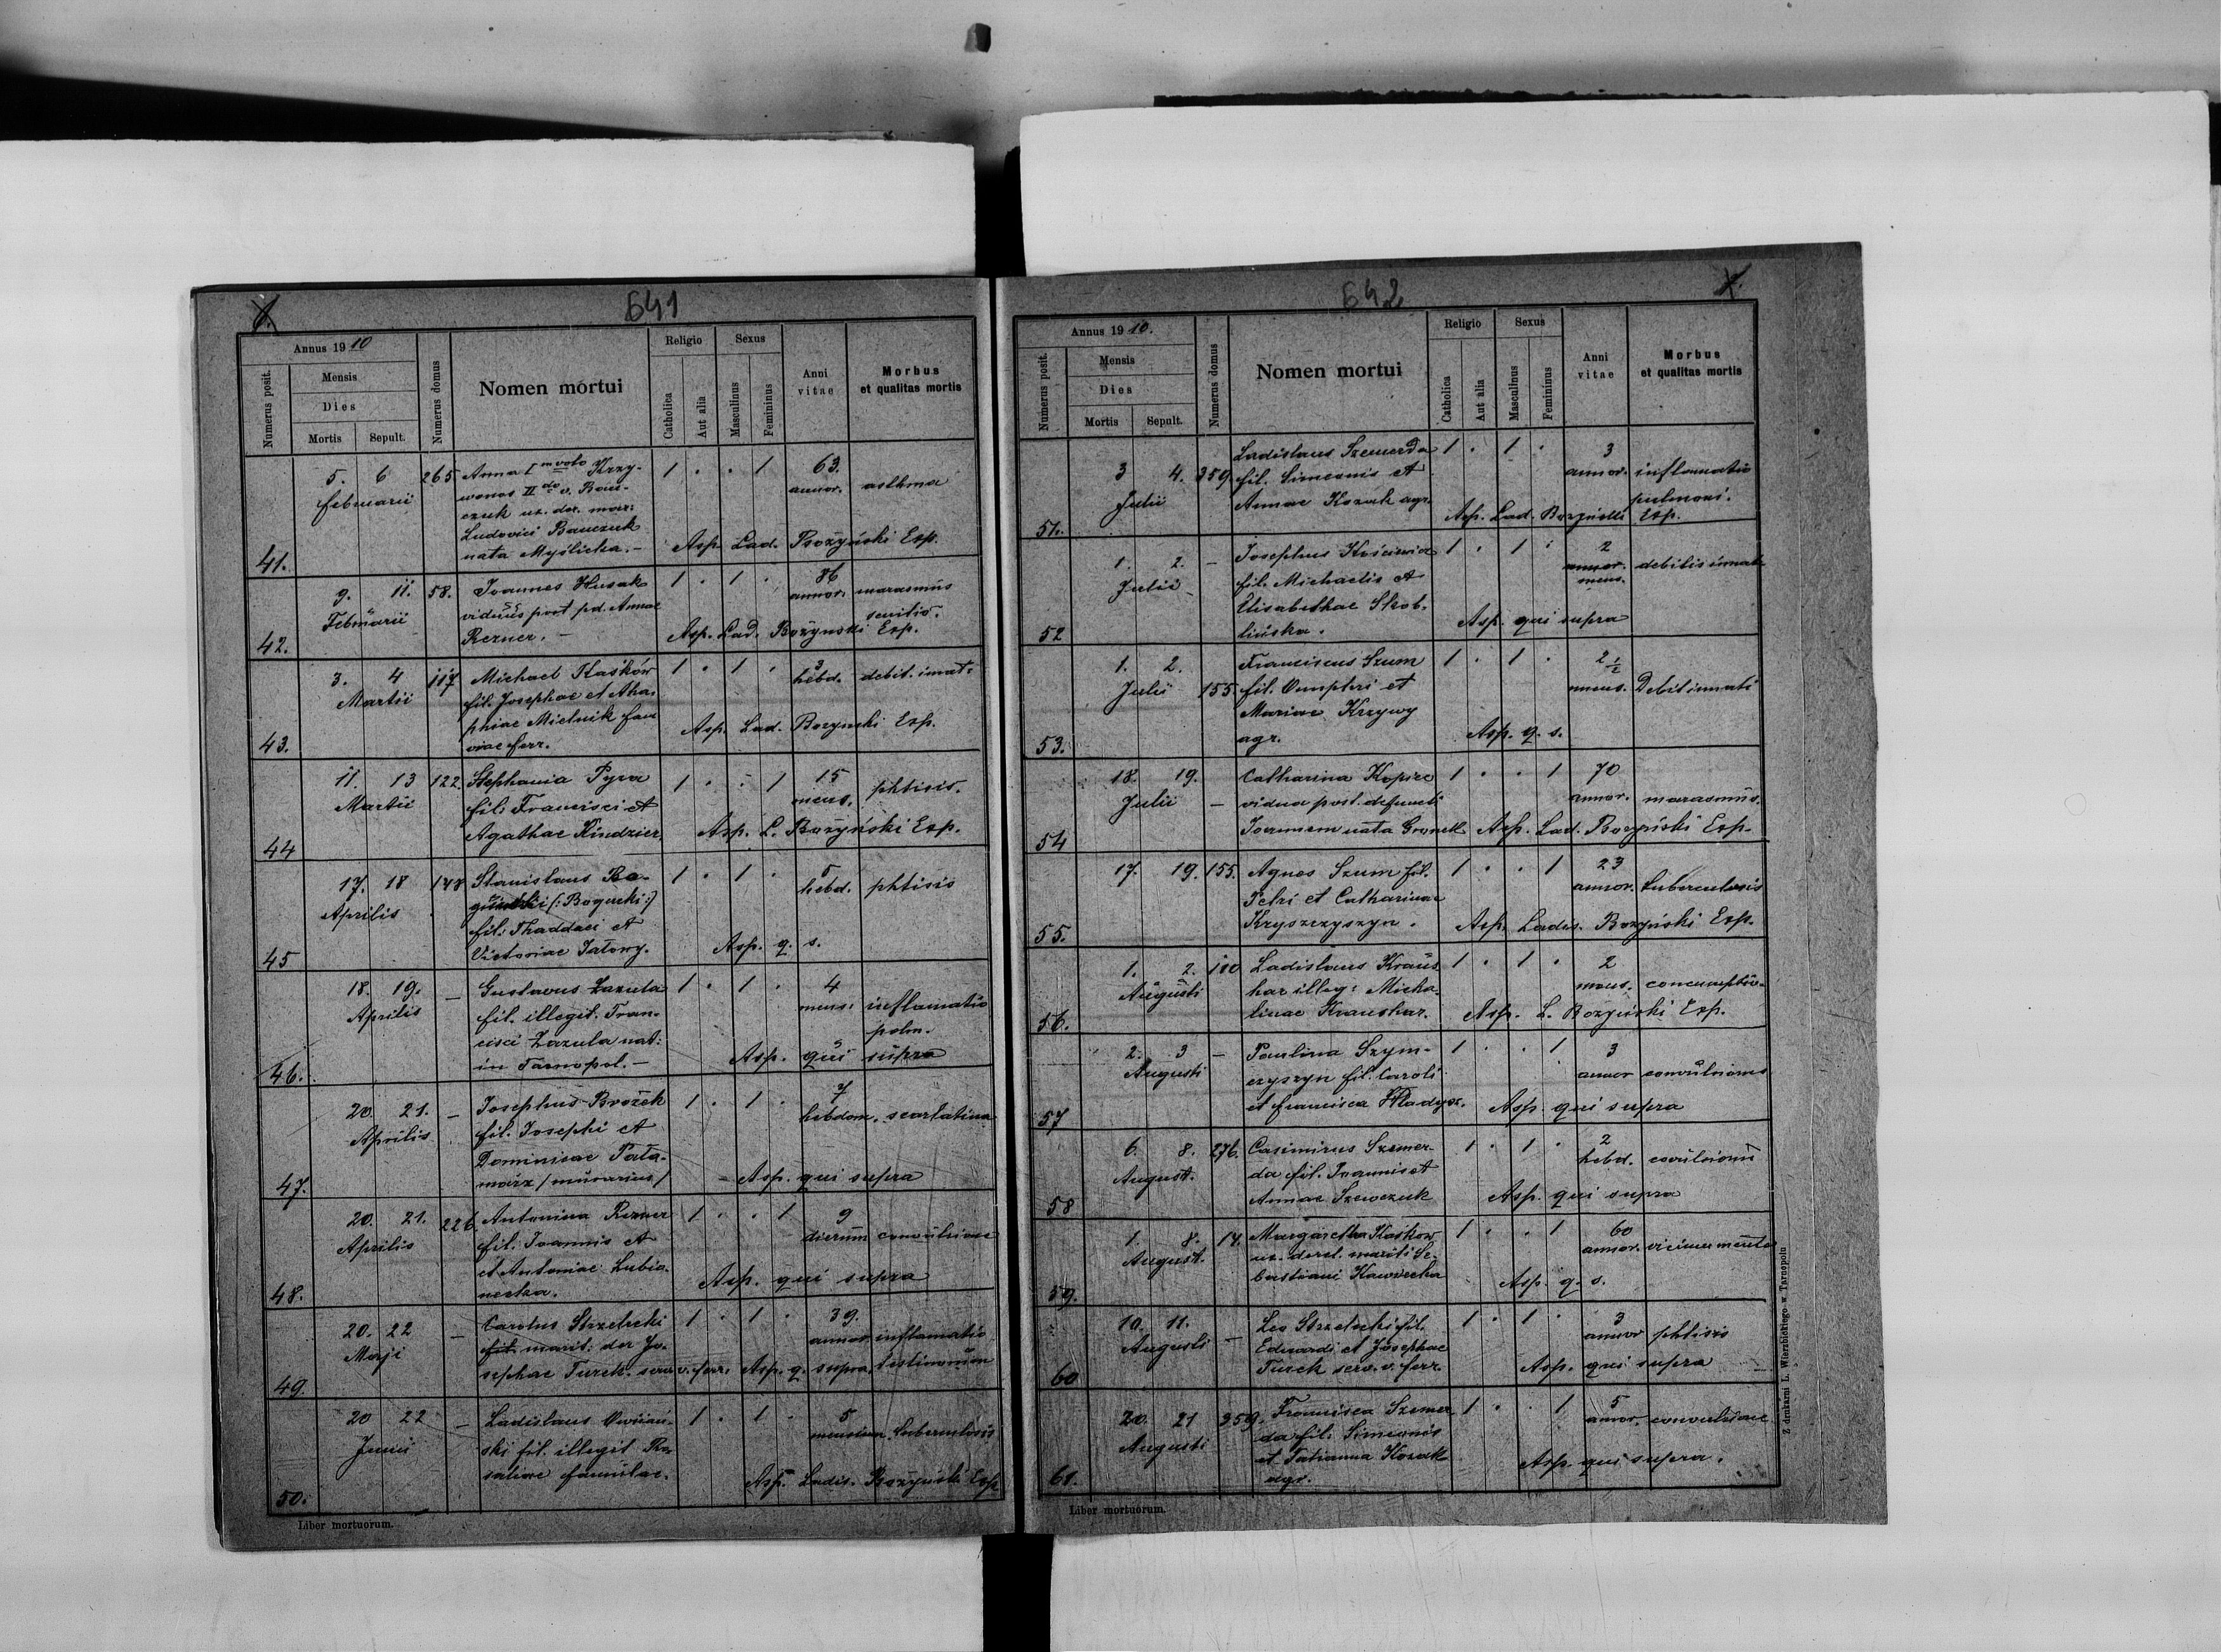 641
Annus 19 10
Numerus posit.
Mensis
Dies
Mortis Sepult.
Numerus domus
Nomen mortui
Religio
Catholica
Aut alia
Sexus
Masculinus
Femininus
Anni vitae
Morbus et qualitas mortis
41.
5. 6 februarii
265
Anna I voto Krzy-
wonos II do v. Bau-
czuk ux. der. mar:
Ludovici Bauczuk
nata Myślicka. —
1 . . 1
63. annor.
asthma
Asp. Lad. Bożyński Exp.
42.
9. 11. Februarii
58.
Joannes Husak
viduus post pd. Annae
Rezner. —
1 . 1 .
86 annor.
marasmus senilis.
Asp. Lad. Bożynski Exp.
43.
3. 4 Martii
117
Michael Kaśków
fil. Josephae et Aha-
phiae Mielnik fam
viae ferr.
1 . 1 .
3 hebd.
debit. inat:
Asp. Lad. Bozynski Exp.
44
11. 13 Martii
122
Stephania Pyra
fil: Francisci et
Agathae Kindzier
1 . . 1
15 mens.
phtisis.
Asp. L. Bożyński Exp.
45
17. 18 Aprilis
Stanislaus Bo-
(: Bogucki :)
fil: Thaddaei et
Victoriae Jatowy.
1 . 1 .
5 hebd.
phtisis
Asp. q. s.
46.
18. 19. Aprilis
—
Gustavus Zazula
fil. illegit. Fran-
cisci Zazula nat:
in Tarnopol. —
1 . 1 .
4 mens:
inflamatio polm.
Asp. qui supra
47.
20 21. Aprilis
—
Josephus Brożek
fil. Josephi et
Dominicae Pata-
marz / murarius /
1 . 1 .
7 hebdom.
scarlatina
Asp. qui supra
48.
20. 21. Aprilis
226
Antonina Rezner
fil. Joannis et
et Antoniae Lubia-
necka.
1 . . 1
9 dierum
convulsione
Asp. qui supra
49.
20. 22 Maji
—
Carolus Strzelecki
fil. marit: der Jo-
sephae Turek. serv. v. ferr.
1 . 1 .
39. annor
inflamatio
Asp. q. supra.
50.
20 22 Junii
—
Ladislaus
ski fil. illegit Ro-
saliae famulae.
1 . 1 .
5 mensium
tuberculosis
Asp. Ladis. Bozyński Exp
Liber mortuorum.
642
Annus 19 10.
Numerus posit.
Mensis
Dies
Mortis Sepult.
Numerus domus
Nomen mortui
Religio
Catholica
Aut alia
Sexus
Masculinus
Femininus
Anni vitae
Morbus et qualitas mortis
51.
3 4. Julii
359.
Ladislaus Szemerda
fil. Simeonis et
Annae Kozak agr.
1 . 1 .
3 annor.
inflamatio pulmoni.
Asp. Lad. Bozyński Exp.
52
1. 2. Julii
—
Josephus
fil. Michaelis et
Elisabethae Skob-
lińska.
1 . 1 .
2 annor. mens.
debilis innat.
Asp. qui supra
53.
1. 2. Julii
155.
Franciscus Szum
fil. Onuphri et
Mariae Krzywy
agr.
1 . 1 .
2 1/2 mens.
Debil innati
Asp. q. s.
54
18. 19. Julii
—
Catharina Kopiec
vidua post. defuncti
Joannem nata Gronek
1 . . 1
70 annor.
marasmus.
Asp. Lad. Bozyński Exp.
55.
17. 19.
155.
Agnes Szum fil.
Petri et Catharinae
Kryszczyszyn.
1 . . 1
23 annor.
tuberculosis
Asp. Ladis. Bozyński Exp.
56.
1. 2. Augusti
Ladislaus Kraus
har illeg: Micha-
linae Kraushar.
1 . 1 .
2 mens.
Asp. L. Bozyński Exp.
57
2. 3 Augusti
—
Paulina Szym-
czyszyn fil. Caroli
et francisca Władyse.
1 . . 1
3 annor
convulsiones
Asp. qui supra
58
6. 8. August.
276.
Casimirus Szemer-
da fil. Joannis et
Annae Szewczuk
1 . 1 .
2 hebd.
Asp. qui supra
59.
1. 8. August.
14.
Margaretha Kaśkow
ux. derel. mariti Se-
bastiani Kawecka
1 . . 1
60 annor.
Asp. q. s.
60
10. 11. Augusti
—
Leo Strzelecki fil.
Eduardi et Josephae
Turek serv. v. ferr.
1 . 1 .
3 annor
phtisis
Asp. qui supra
61.
20. 21 Augusti
359.
Francisca Szemer
da fil. Simeonis
et Tatianna Kozak
agr.
1 . . 1
5 annor.
convulsione
Asp. qui supra.
Liber mortuorum.
Z drukarni L. Wierzbickiego w Tarnopolu